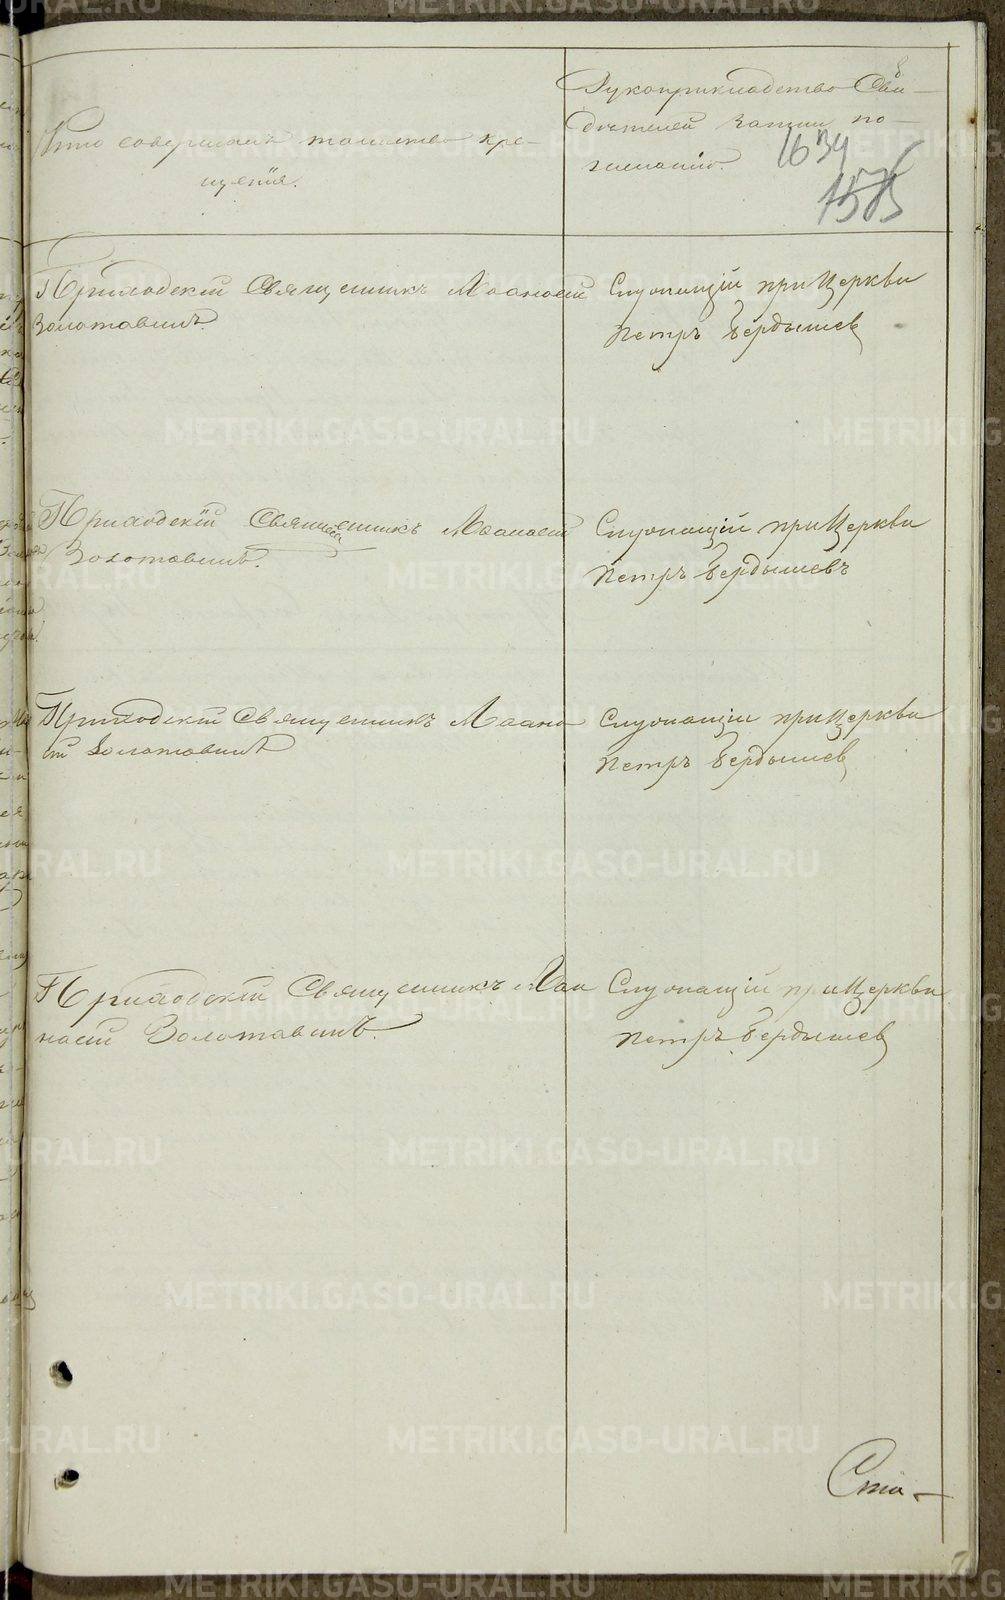 Кто совершалъ таинство кре-
щенія.
Рукоприкладство Сви-
дѣтелей записи по
желанію.
8
1634
1575
Приходскій Священникъ Аѳанасій
Золотавинъ.
Служащій при Церкви
Петръ Бердышев
Приходскій Священникъ Аѳанасій
Золотавинъ.
Служащій при Церкви
Петръ Бердышевъ
Приходскій Священникъ Аѳана
сій Золотавинъ
Служащій при Церкви
Петръ Бердышев
Приходскій Священникъ Аѳа
насій Золотавинъ.
Служащій при Церкви
Петръ Бердышев
Ста-
7
METRIKI.GASO-URAL.RU